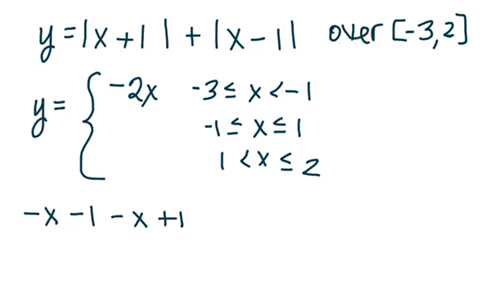 y = |x + 1| + |x - 1| over [-3, 2]
y = { -2x -3 ≤ x < -1
-1 ≤ x ≤ 1
1 < x ≤ 2
-x - 1 - x + 1